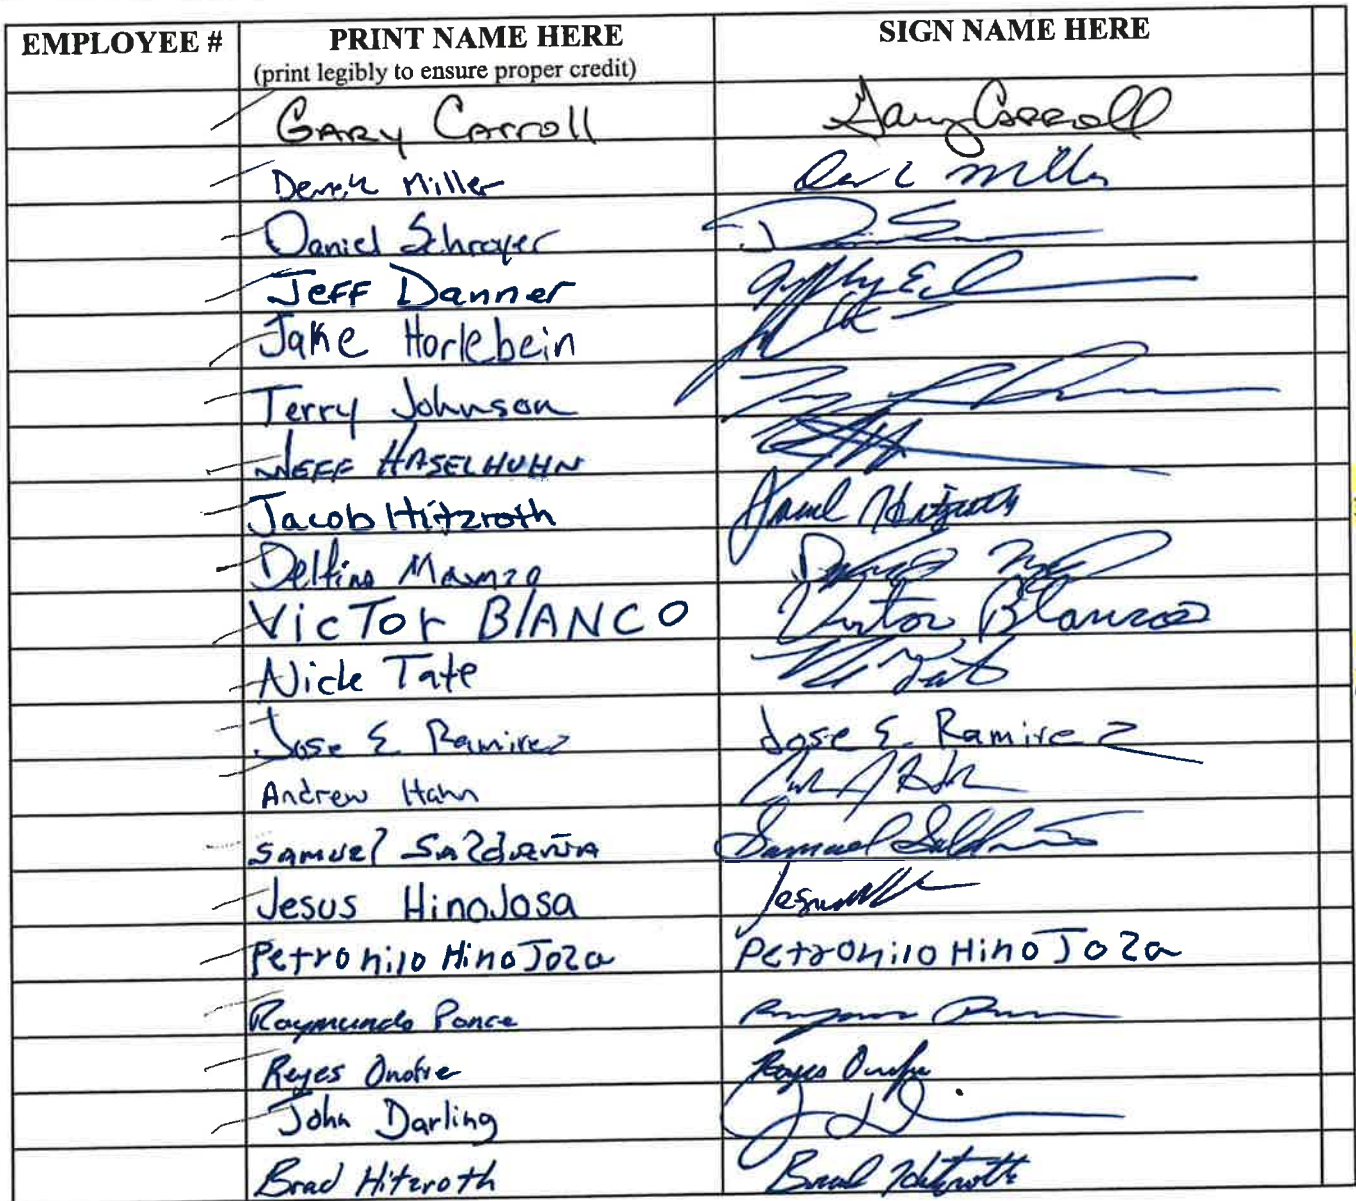 EMPLOYEE # PRINT NAME HERE SIGN NAME HERE
(print legibly to ensure proper credit)
GARY Carroll Gary Carroll
Derek Miller Derek Miller
Daniel Schroyer
JeFF Danner
Jake Horlebein
Terry Johnson
JEFF HASELHUHN
Jacob Hitzroth Jacob Hitzroth
Delfino
VicTor BlANCO Victor Blanco
Nick Tate Nick Tate
Jose E Ramirez Jose E Ramirez
Andrew Hahn
SAMUEl SAldaña Samuel Saldaña
Jesus HinoJosa Jesus
Petronilo HinoJoza Petronilo HinoJoza
Raymundo Ponce
Reyes Onofre Reyes Onofre
John Darling
Brad Hitzroth Brad Hitzroth